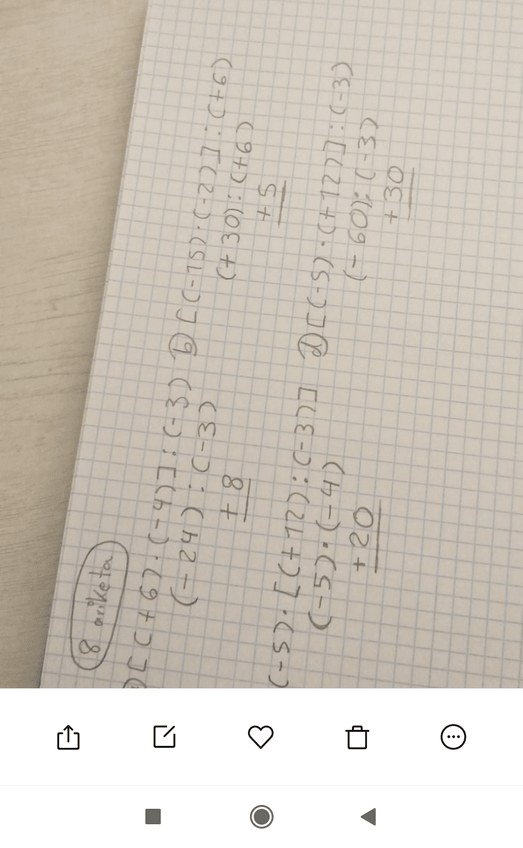 8 ariketa
[(+6)·(-4)]:(-3)
(-24):(-3)
+8
b) [(-15)·(-2)]:(+6)
(+30):(+6)
+5
(-5)·[(+12):(-3)]
(-5)·(-4)
+20
d) [(-5)·(+12)]:(-3)
(-60):(-3)
+30